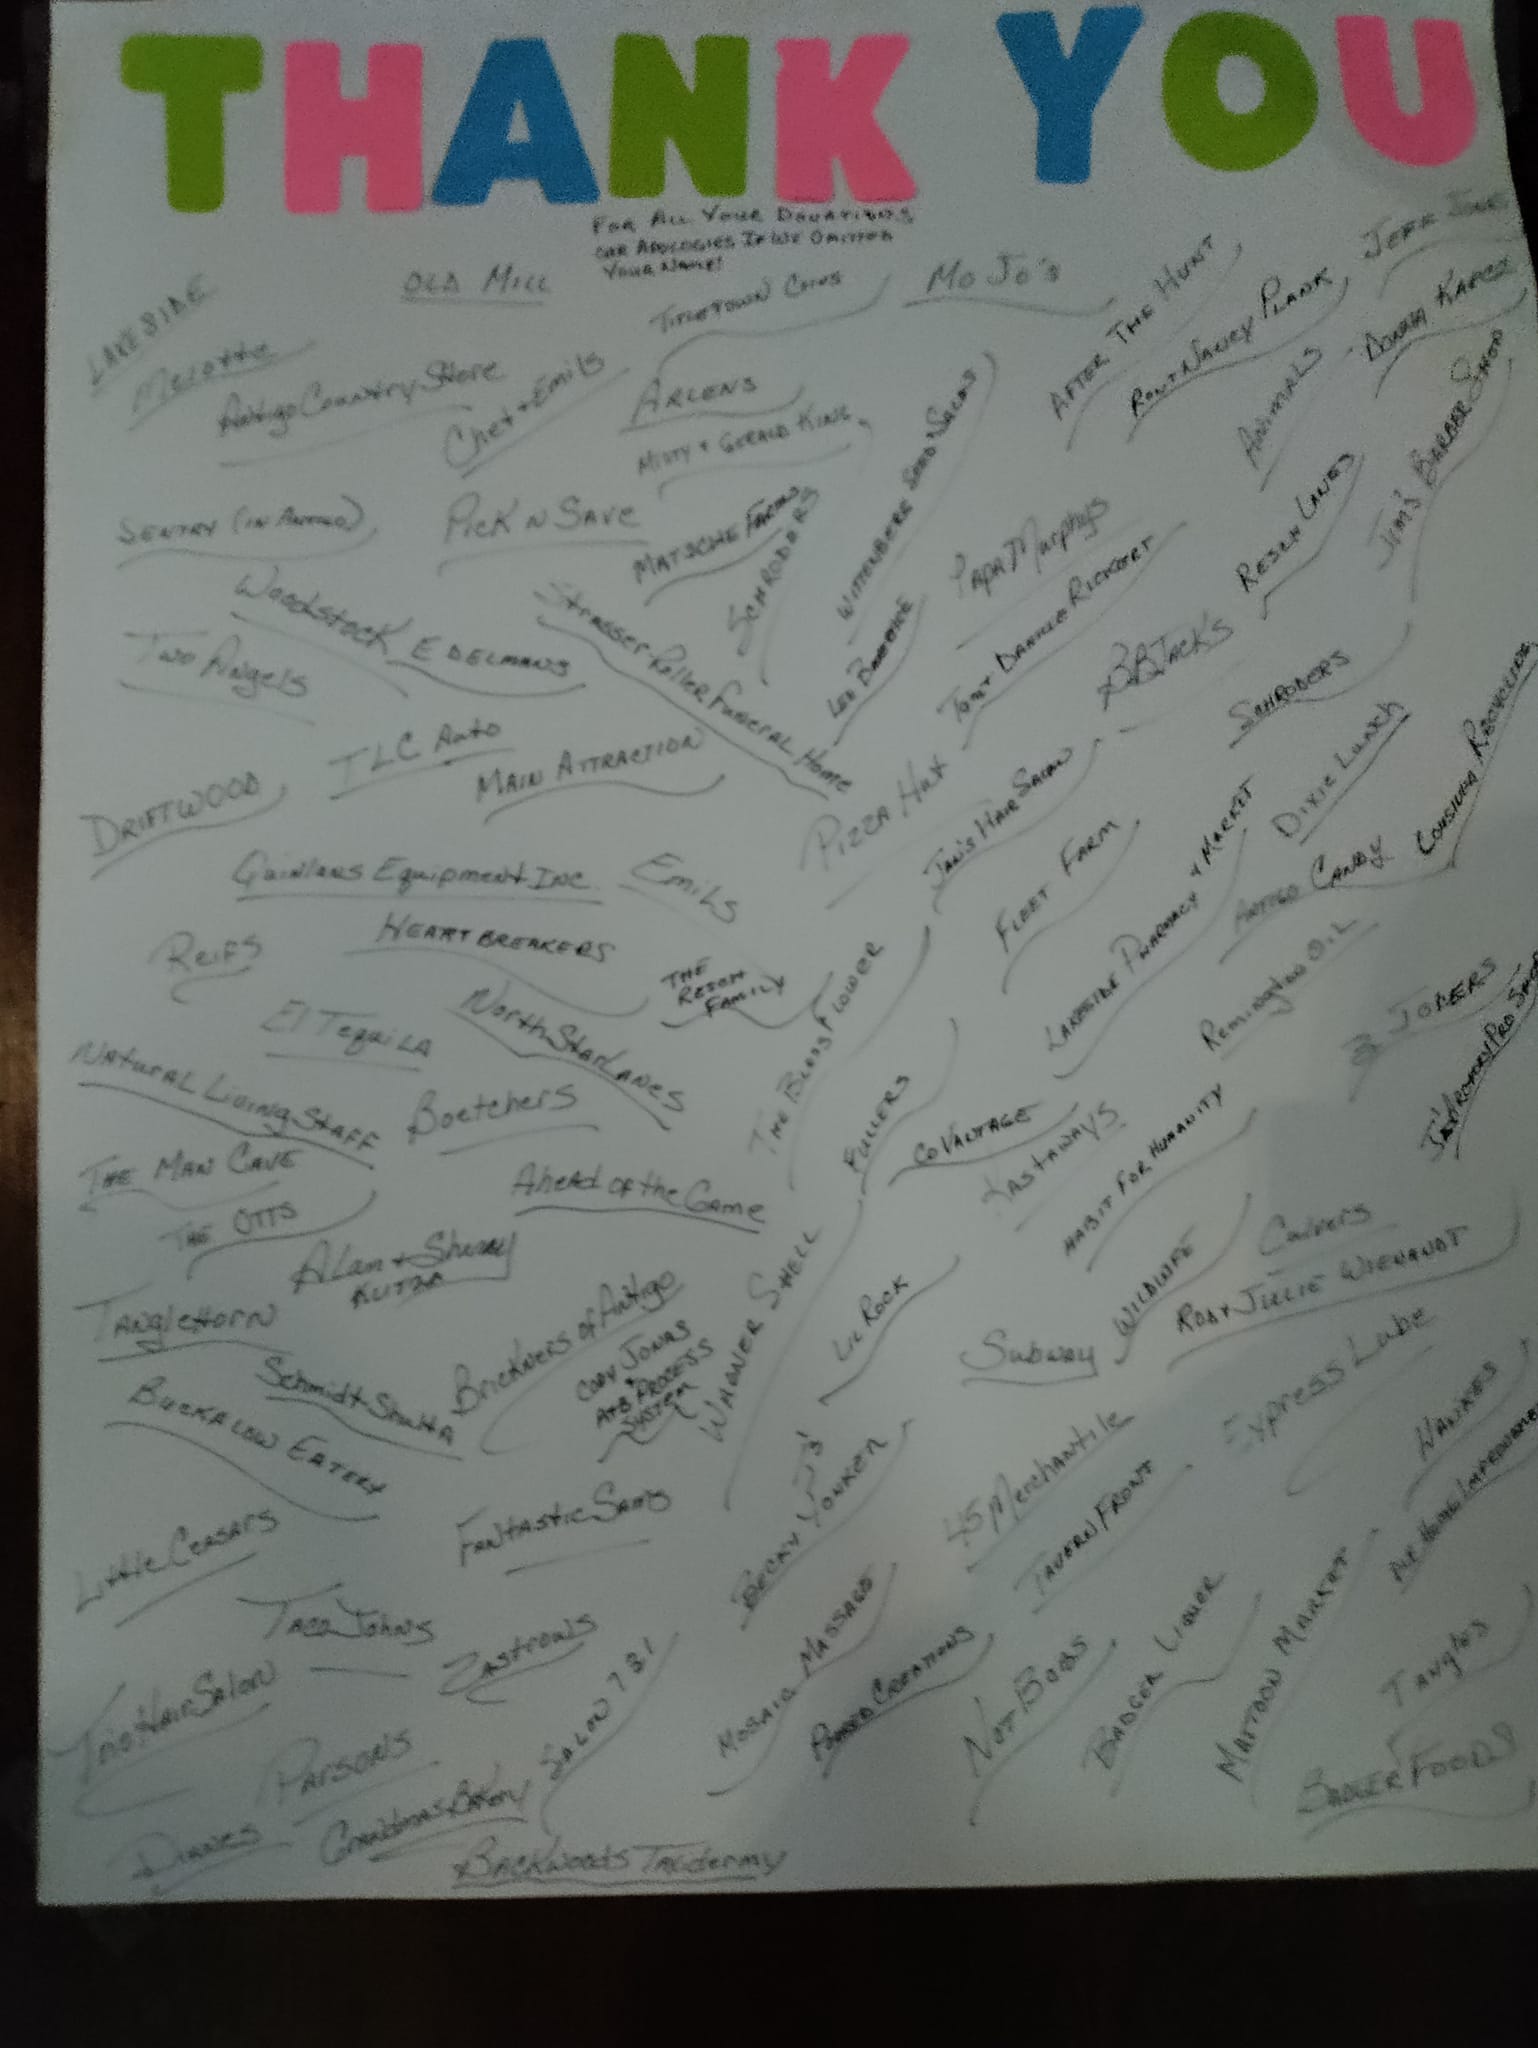 THANK YOU
FOR ALL YOUR DONATIONS
OUR APOLOGIES IF WE OMITTED
YOUR NAME!
LAKESIDE
OLD MILL
TITLETOWN COINS
MO JO'S
AFTER THE HUNT
RON + NANCY PLANK
JEFF
DONNA
Melotte
Antigo Country Store
Chet + Emils
ARLENS
MISTY + GERALD KING
WITTENBERG SEED SALES
ANIMAL
JIM'S BARBER SHOP
SENTRY (IN ANTIGO)
PICK N SAVE
MATSCHE FARMS
SCHRODERS
PAPA Murphys
RESCH LANES
Woodstock
EDELMANS
Strasser-Roller Funeral Home
LEO
TOM + DARKLE RICKERT
BBJACK'S
SCHRODERS
Two Angels
TLC Auto
MAIN ATTRACTION
DRIFTWOOD
PIZZA Hut
JAN'S HAIR SALON
FLEET FARM
DIXIE LUNCH
RECYCLING
Quinlans Equipment Inc.
EMILS
LAKESIDE PHARMACY + MARKET
ANTIGO CANDY
REIFS
HEARTBREAKERS
THE
RESCH
FAMILY
THE BLOSS FLOWER
Remington OIL
3 JOKERS
El TequiLA
North Star Lanes
NATURAL Living STAFF
Boetchers
FULLERS
COVANTAGE
KASTAWAYS
HABIT FOR HUMANITY
PRO SHOP
THE MAN CAVE
Ahead of the Game
THE OTTS
Alan + Sherry
KUTZA
WAGNER SHELL
LIL ROCK
WILDLIFE
Culvers
ROD + JULIE WIENANDT
TANGLEHORN
Brickners of Antigo
CODY JONAS
+
A+B PROCESS
SYSTEM
Subway
Express Lube
Schmidt
BUCKALOW EATERY
BECKY YONKER
45 Merchantile
TAVERN FRONT
HOME IMPROVEMENT
Little Ceasars
FANTASTIC SAMS
TACO JOHNS
ZASTROWS
MOSAIC MASSAGE
CREATIONS
NOT BOBS
BADGER LIQUOR
MATTOON MARKET
Tangles
Trio Hair Salon
PARSONS
SALON 731
BADGER FOODS
DIANES
Grandmas Bakery
BACKWOODS TAXIDERMY